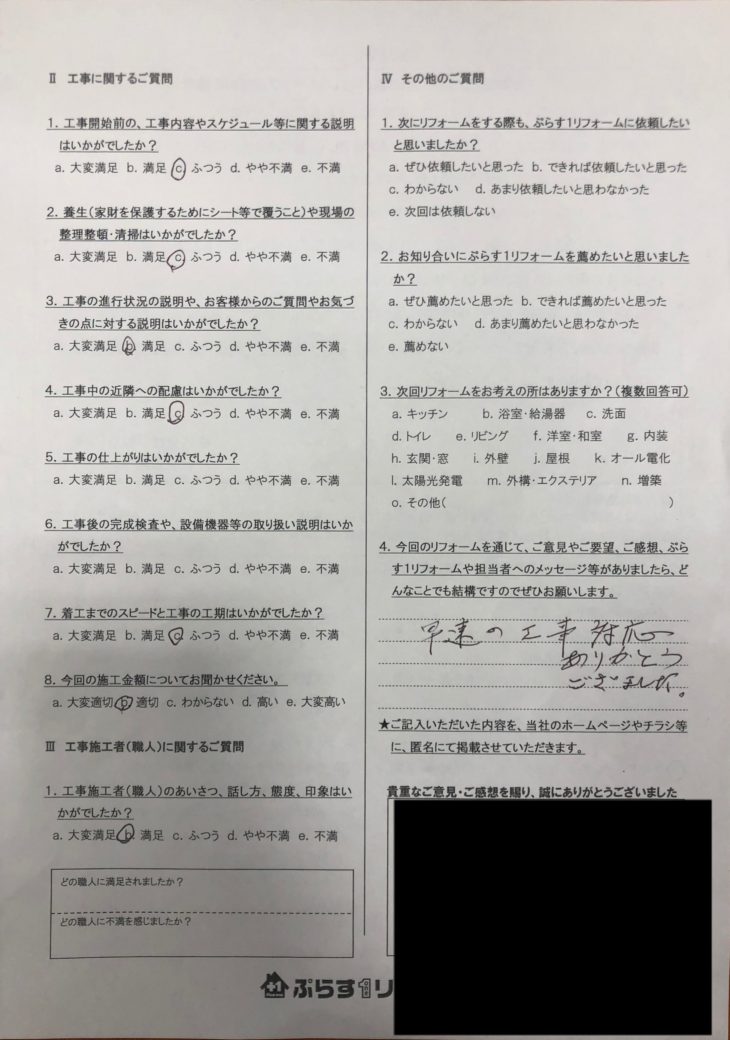 Ⅱ 工事に関するご質問
1. 工事開始前の、工事内容やスケジュール等に関する説明
はいかがでしたか?
a. 大変満足 b. 満足 c. ふつう d. やや不満 e. 不満
2. 養生(家財を保護するためにシート等で覆うこと)や現場の
整理整頓・清掃はいかがでしたか?
a. 大変満足 b. 満足 c. ふつう d. やや不満 e. 不満
3. 工事の進行状況の説明や、お客様からのご質問やお気づ
きの点に対する説明はいかがでしたか?
a. 大変満足 b. 満足 c. ふつう d. やや不満 e. 不満
4. 工事中の近隣への配慮はいかがでしたか?
a. 大変満足 b. 満足 c. ふつう d. やや不満 e. 不満
5. 工事の仕上がりはいかがでしたか?
a. 大変満足 b. 満足 c. ふつう d. やや不満 e. 不満
6. 工事後の完成検査や、設備機器等の取り扱い説明はいか
がでしたか?
a. 大変満足 b. 満足 c. ふつう d. やや不満 e. 不満
7. 着工までのスピードと工事の工期はいかがでしたか?
a. 大変満足 b. 満足 c. ふつう d. やや不満 e. 不満
8. 今回の施工金額についてお聞かせください。
a. 大変適切 b. 適切 c. わからない d. 高い e. 大変高い
Ⅲ 工事施工者(職人)に関するご質問
1. 工事施工者(職人)のあいさつ、話し方、態度、印象はい
かがでしたか?
a. 大変満足 b. 満足 c. ふつう d. やや不満 e. 不満
どの職人に満足されましたか?
どの職人に不満を感じましたか?
Ⅳ その他のご質問
1. 次にリフォームをする際も、ぷらす1リフォームに依頼したい
と思いましたか?
a. ぜひ依頼したいと思った b. できれば依頼したいと思った
c. わからない d. あまり依頼したいと思わなかった
e. 次回は依頼しない
2. お知り合いにぷらす1リフォームを薦めたいと思いました
か?
a. ぜひ薦めたいと思った b. できれば薦めたいと思った
c. わからない d. あまり薦めたいと思わなかった
e. 薦めない
3. 次回リフォームをお考えの所はありますか?(複数回答可)
a. キッチン b. 浴室・給湯器 c. 洗面
d. トイレ e. リビング f. 洋室・和室 g. 内装
h. 玄関・窓 i. 外壁 j. 屋根 k. オール電化
l. 太陽光発電 m. 外構・エクステリア n. 増築
o. その他( )
4. 今回のリフォームを通じて、ご意見やご要望、ご感想、ぷら
す1リフォームや担当者へのメッセージ等がありましたら、ど
んなことでも結構ですのでぜひお願いします。
早速の工事対応
ありがとう
ございました。
★ご記入いただいた内容を、当社のホームページやチラシ等
に、匿名にて掲載させていただきます。
貴重なご意見・ご感想を賜り、誠にありがとうございました
+1 ぷらす1リ